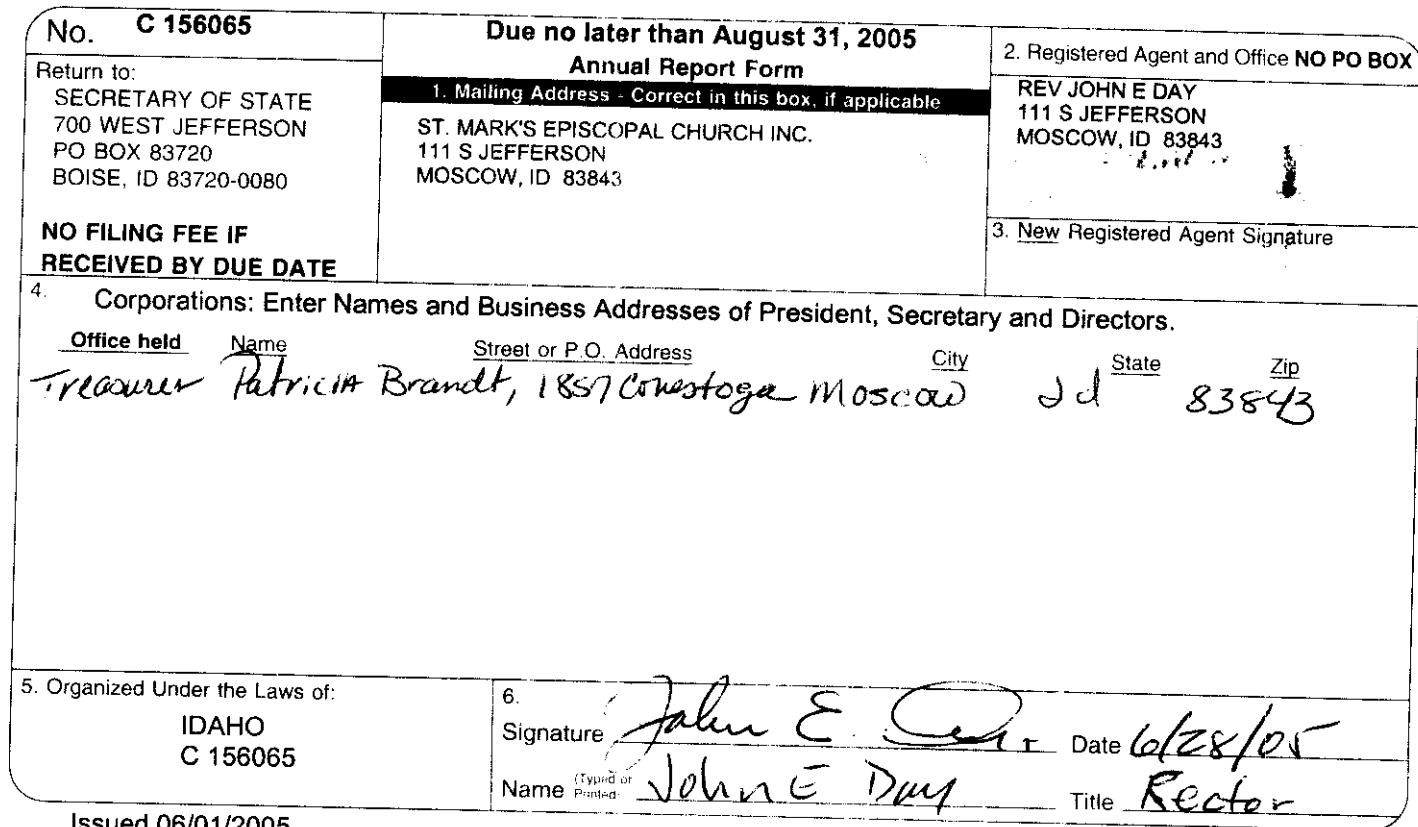 No. C 156065
Return to:
SECRETARY OF STATE
700 WEST JEFFERSON
PO BOX 83720
BOISE, ID 83720-0080
NO FILING FEE IF
RECEIVED BY DUE DATE
Due no later than August 31, 2005
Annual Report Form
1. Mailing Address - Correct in this box, if applicable
ST. MARK'S EPISCOPAL CHURCH INC.
111 S JEFFERSON
MOSCOW, ID 83843
2. Registered Agent and Office NO PO BOX
REV JOHN E DAY
111 S JEFFERSON
MOSCOW, ID 83843
3. New Registered Agent Signature
4. Corporations: Enter Names and Business Addresses of President, Secretary and Directors.
Office held Name Street or P.O. Address City State Zip
Treasurer Patricia Brandt, 1857 Conestoga Moscow Id 83843
5. Organized Under the Laws of:
IDAHO
C 156065
6.
Signature John E. Day Date 6/28/05
Name (Typed or Printed) John E Day Title Rector
Issued 06/01/2005